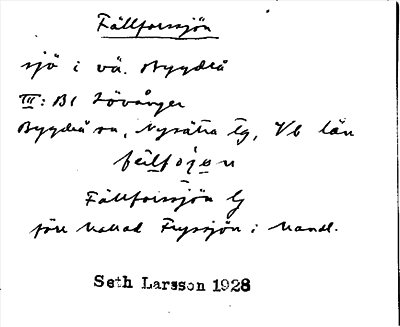 Fällforssjön
sjö i vä. Bygdeå
III: B1 Lövånger
Bygdeå sn, Nysätra tg, Vb län
Fällforssjön G
förr kallad Frysjön i handl.
Seth Larsson 1928